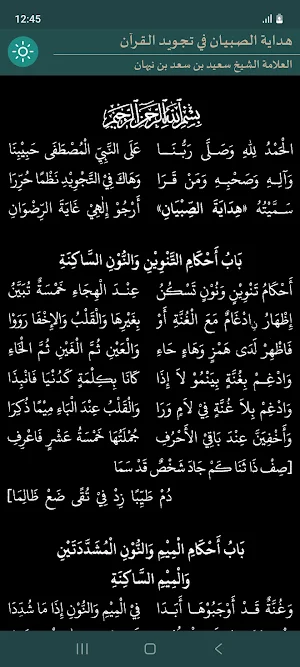 12:45
هداية الصبيان في تجويد القرآن
العلامة الشيخ سعيد بن سعد بن نبهان
بِسْمِ اللَّهِ الرَّحْمَنِ الرَّحِيمِ
الْحَمْدُ لِلهِ وَصَلَّى رَبُّنَا عَلَى النَّبِيِّ الْمُصْطَفَى حَبِيْبِنَا
وَآلِهِ وَصَحْبِهِ وَمَنْ قَرَا وَهَاكَ فِي التَّجْوِيْدِ نَظْمًا حُرِّرَا
سَمَّيْتُهُ «هِدَايَةَ الصِّبْيَانِ» أَرْجُوْ إِلٰهِيْ غَايَةَ الرِّضْوَانِ
بَابُ أَحْكَامِ التَّنْوِيْنِ وَالنُّوْنِ السَّاكِنَةِ
أَحْكَامُ تَنْوِيْنٍ وَنُوْنٍ تَسْكُنُ عِنْدَ الْهِجَاءِ خَمْسَةٌ تُبَيَّنُ
إِظْهَارُ ادْغَامٌ مَعَ الْغُنَّةِ أَوْ بِغَيْرِهَا وَالْقَلْبُ وَالْإِخْفَا رَوَوْا
فَاظْهِرْ لَدَى هَمْزٍ وَهَاءٍ حَاءِ وَالْعَيْنِ ثُمَّ الْغَيْنِ ثُمَّ الْخَاءِ
وَادْغِمْ بِغُنَّةٍ بِيَنْمُوْ لَا إِذَا كَانَا بِكِلْمَةٍ كَدُنْيَا فَانْبِذَا
وَادْغِمْ بِلَا غُنَّةٍ فِيْ لَامٍ وَرَا وَالْقَلْبُ عِنْدَ الْبَاءِ مِيْمًا ذُكِرَا
وَأَخْفِيَنَّ عِنْدَ بَاقِي الْأَحْرُفِ جُمْلَتُهَا خَمْسَةُ عَشْرٍ فَاعْرِفِ
[صِفْ ذَا ثَنَا كَمْ جَادَ شَخْصٌ قَدْ سَمَا
دُمْ طَيِّبًا زِدْ فِيْ تُقًى ضَعْ ظَالِمَا]
بَابُ أَحْكَامِ الْمِيْمِ وَالنُّوْنِ الْمُشَدَّدَتَيْنِ
وَالْمِيْمِ السَّاكِنَةِ
وَغُنَّةٌ قَدْ أَوْجَبُوْهَا أَبَدَا فِي الْمِيْمِ وَالنُّوْنِ إِذَا مَا شُدِّدَا